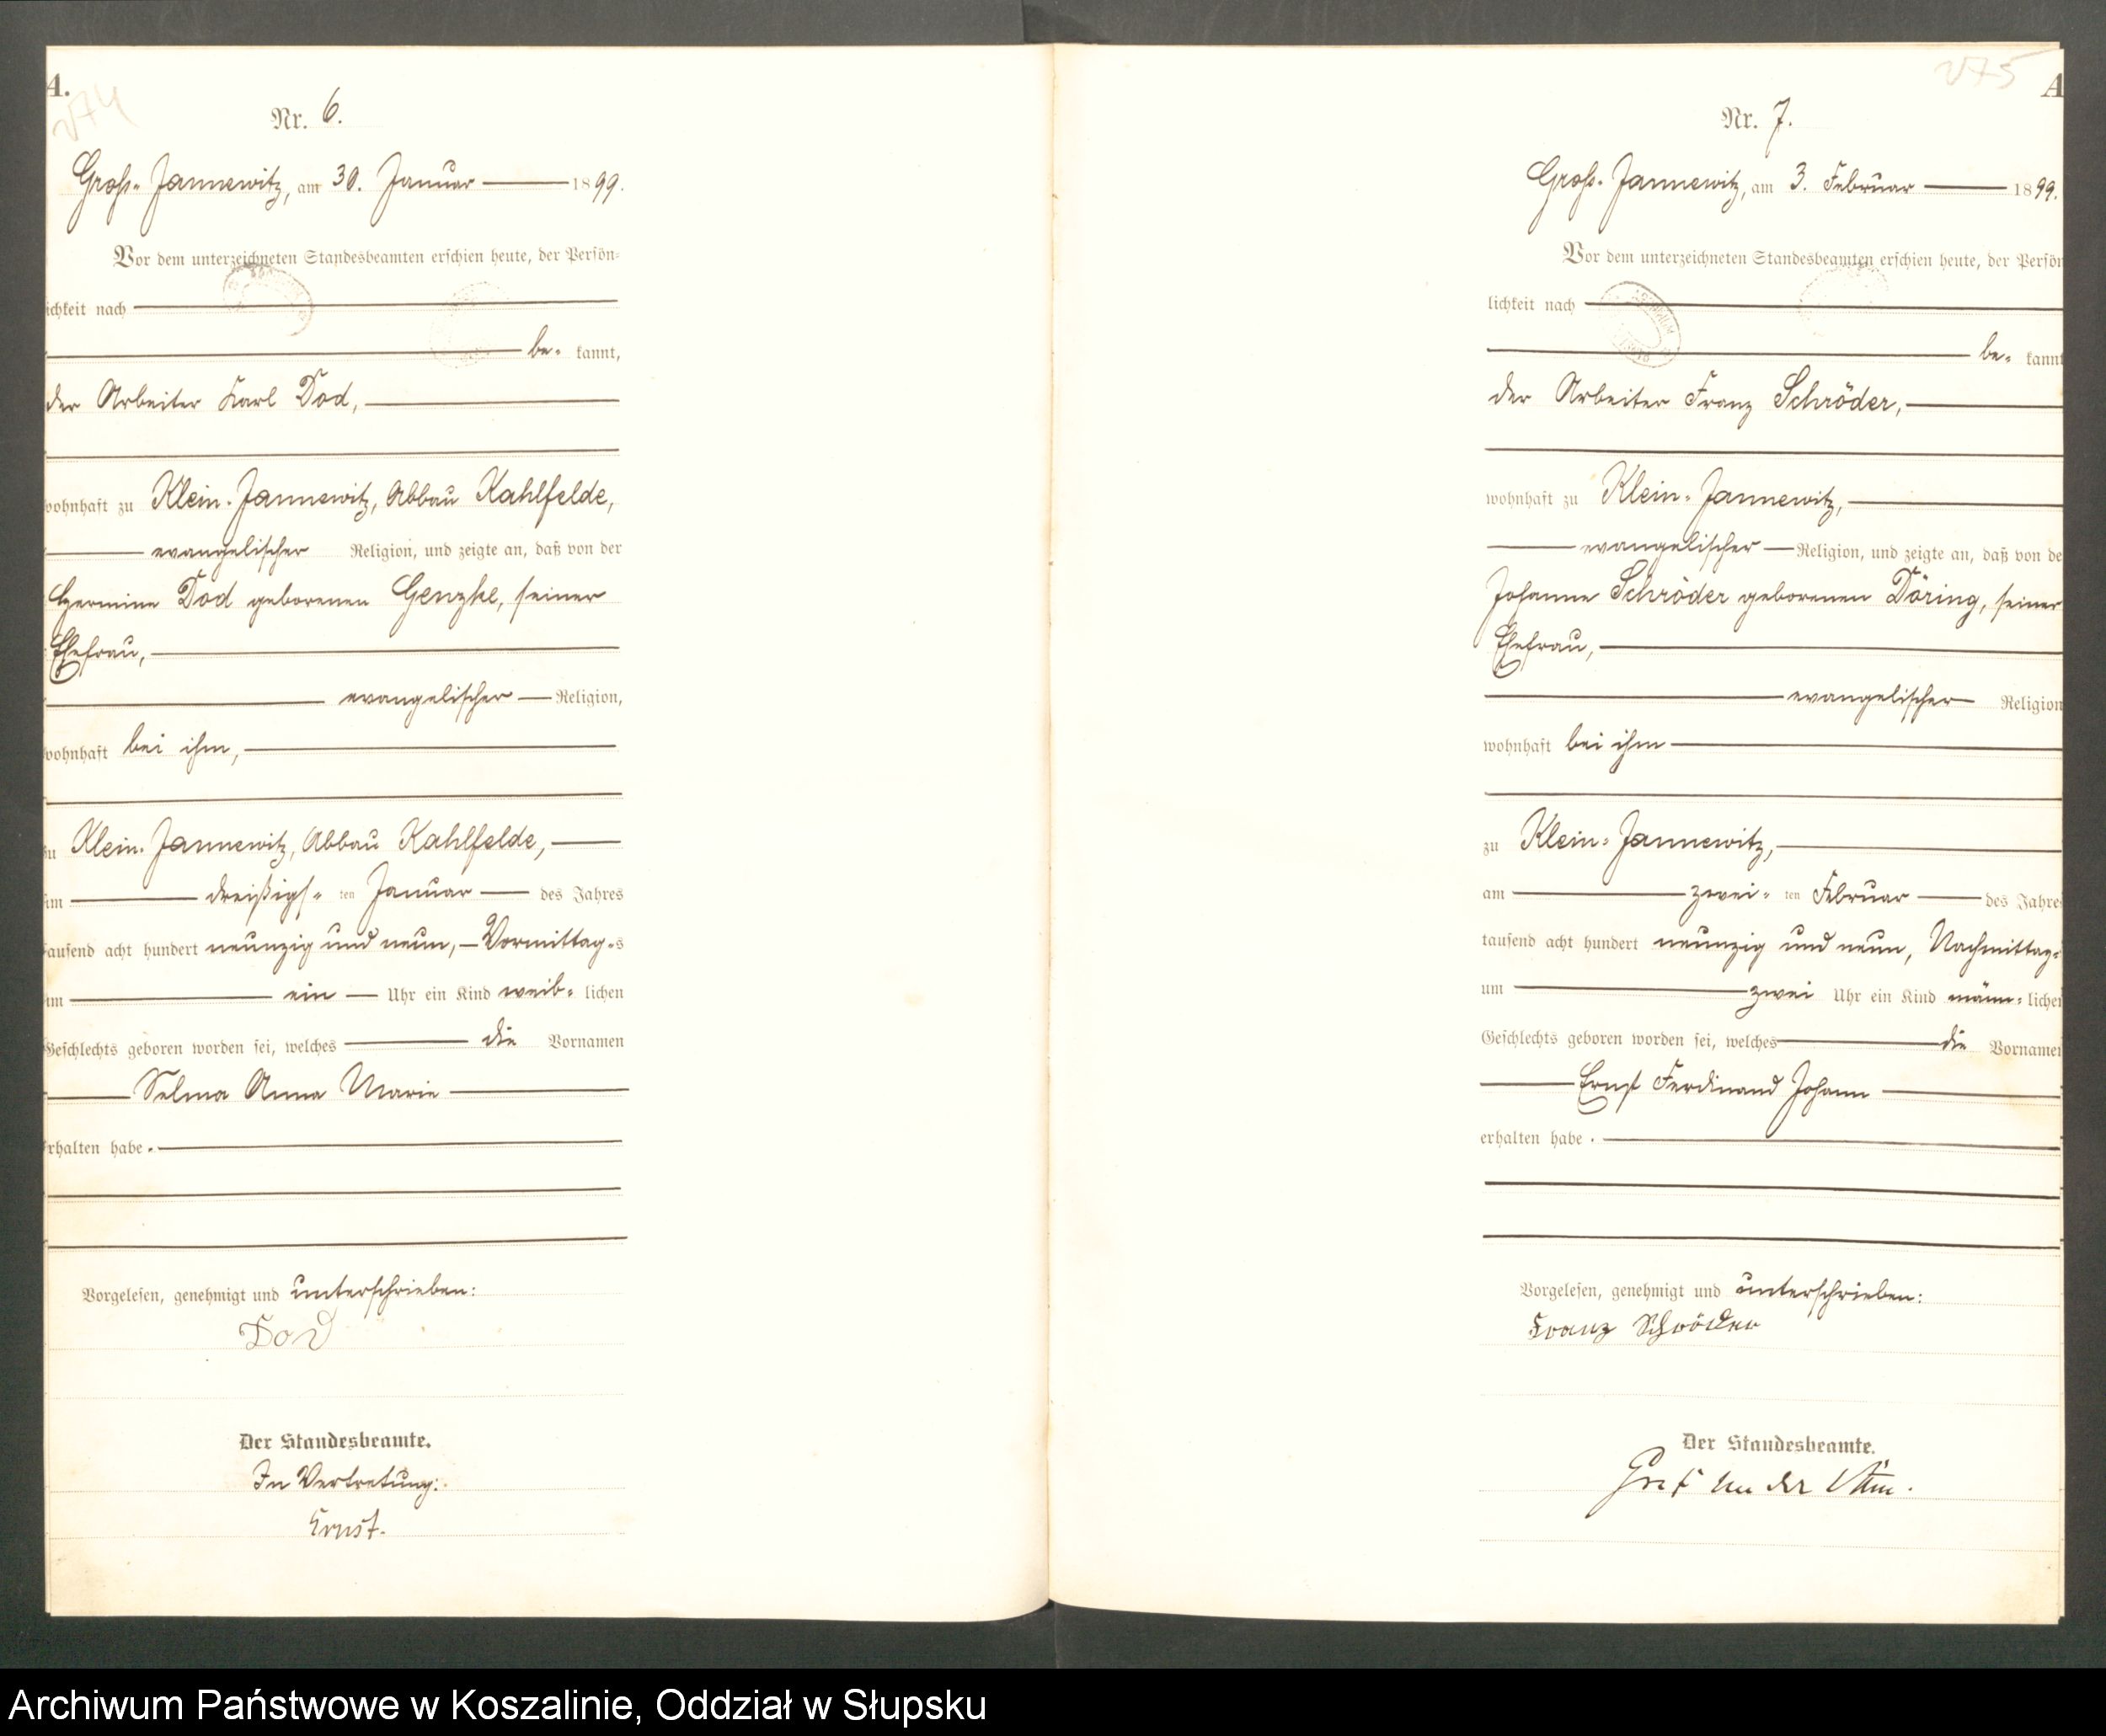 A.
274
Nr. 6.
Groß-Jannewitz, am 30. Januar 1899.
Vor dem unterzeichneten Standesbeamten erschien heute, der Persön-
ichkeit nach
be- kannt,
der Arbeiter Karl Dod,
wohnhaft zu Klein-Jannewitz, Abbau Kahlfelde,
evangelischer Religion, und zeigte an, daß von der
Hermine Dod geborenen Genzke, seiner
Ehefrau,
evangelischer Religion,
wohnhaft bei ihm,
zu Klein-Jannewitz, Abbau Kahlfelde,
am dreißigs-ten Januar des Jahres
tausend acht hundert neunzig und neun, Vormittag-s
um ein Uhr ein Kind weib-lichen
Geschlechts geboren worden sei, welches die Vornamen
Selma Anna Marie
erhalten habe.
Vorgelesen, genehmigt und unterschrieben:
Dod
Der Standesbeamte.
In Vertretung:
Ernst.
275
A
Nr. 7.
Groß-Jannewitz, am 3. Februar 1899.
Vor dem unterzeichneten Standesbeamten erschien heute, der Persön
lichkeit nach
be- kannt
der Arbeiter Franz Schröder,
wohnhaft zu Klein-Jannewitz,
evangelischer Religion, und zeigte an, daß von de
Johanne Schröder geborenen Döring, seiner
Ehefrau,
evangelischer Religion
wohnhaft bei ihm
zu Klein-Jannewitz,
am zwei-ten Februar des Jahre
tausend acht hundert neunzig und neun, Nachmittag-
um zwei Uhr ein Kind männ-liche
Geschlechts geboren worden sei, welches die Vorname
Ernst Ferdinand Johann
erhalten habe.
Vorgelesen, genehmigt und unterschrieben:
Franz Schröder
Der Standesbeamte.
Graf
Archiwum Państwowe w Koszalinie, Oddział w Słupsku